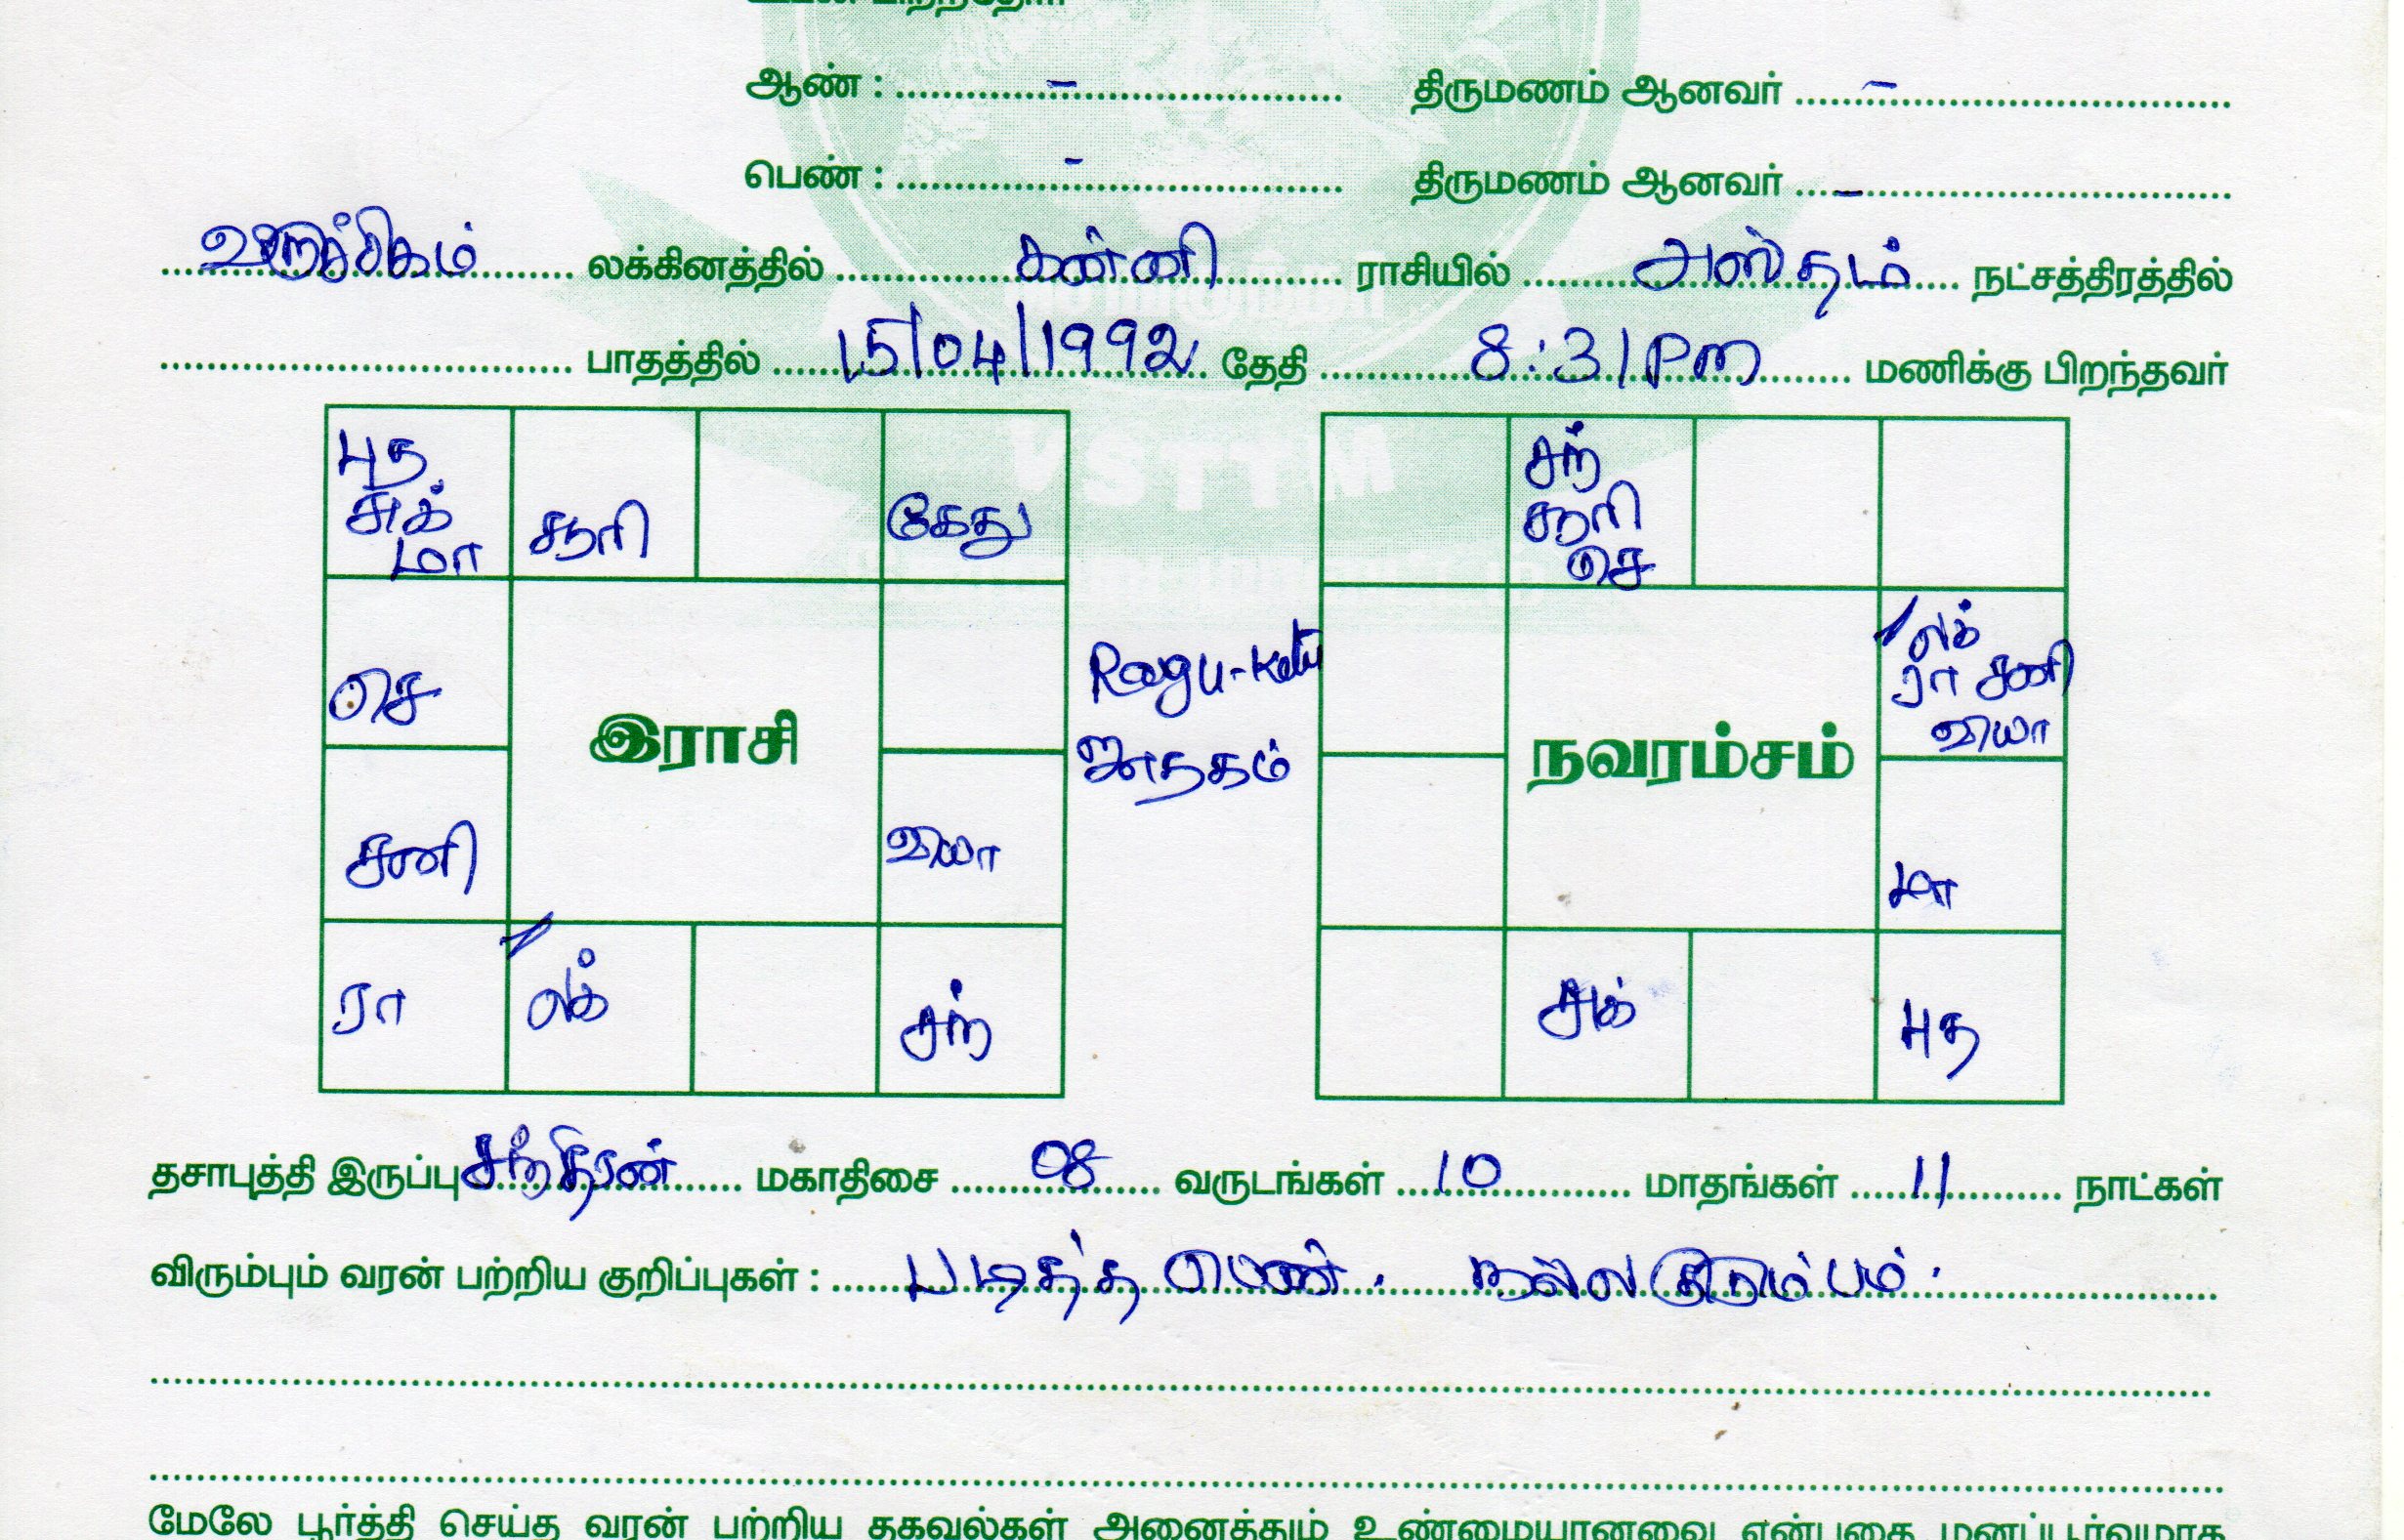 ஆண் : - திருமணம் ஆனவர் -
பெண் : - திருமணம் ஆனவர் -
விருச்சிகம் லக்கினத்தில் கன்னி ராசியில் அஸ்தம் நட்சத்திரத்தில்
பாதத்தில் 15/04/1992 தேதி 8:31 PM மணிக்கு பிறந்தவர்
புத
சுக்
மா
சூரி
கேது
செ
இராசி
சனி
வியா
ரா
லக்
சந்
Ragu-Ketu
ஜாதகம்
சந்
சூரி
செ
லக்
ரா சனி
வியா
நவரம்சம்
மா
சுக்
புத
தசாபுத்தி இருப்பு சந்திரன் மகாதிசை 08 வருடங்கள் 10 மாதங்கள் 11 நாட்கள்
விரும்பும் வரன் பற்றிய குறிப்புகள் : படித்த பெண். நல்ல குடும்பம்.
மேலே பூர்த்தி செய்த வரன் பற்றிய தகவல்கள் அனைத்தும் உண்மையானவை என்பதை மனப்பூர்வமாக